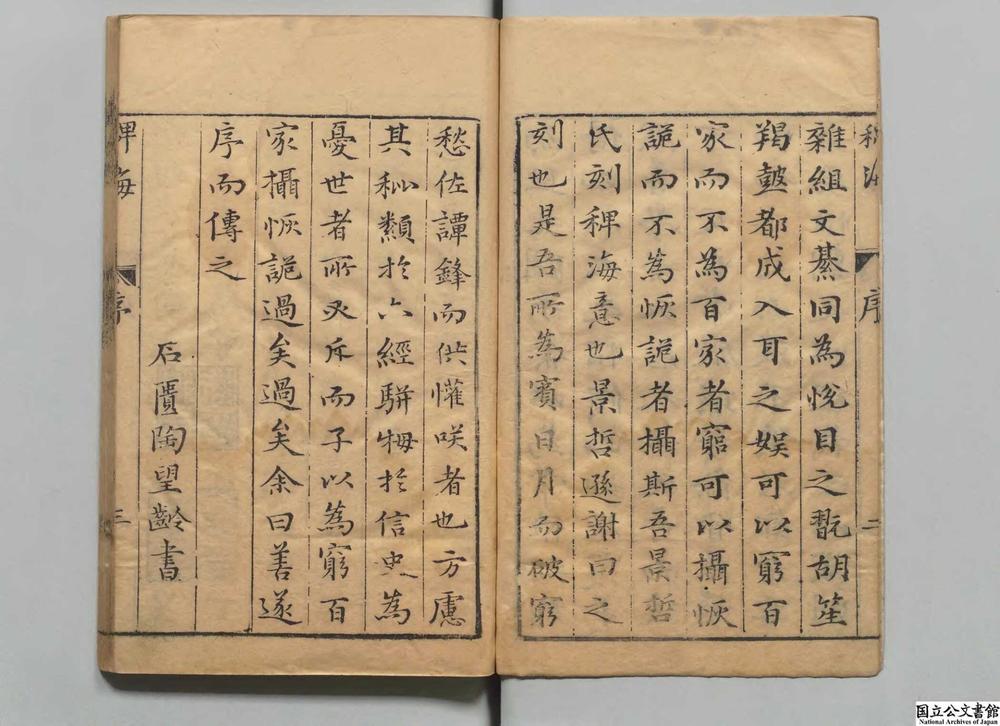 稗海
序
二
雜組文綦同為悅目之翫胡笙
羯鼓都成入耳之娛可以窮百
家而不為百家者窮可以攝恢
詭而不為恢詭者攝斯吾景哲
氏刻稗海意也景哲遜謝曰之
刻也是吾所為賓日月而破窮
愁佐譚鋒而供懽咲者也方慮
其秕纇於六經駢拇於信史為
憂世者所攻斥而子以為窮百
家攝恢詭過矣過矣余曰善遂
序而傳之
石匱陶望齡書
稗海
序
三
国立公文書館
National Archives of Japan